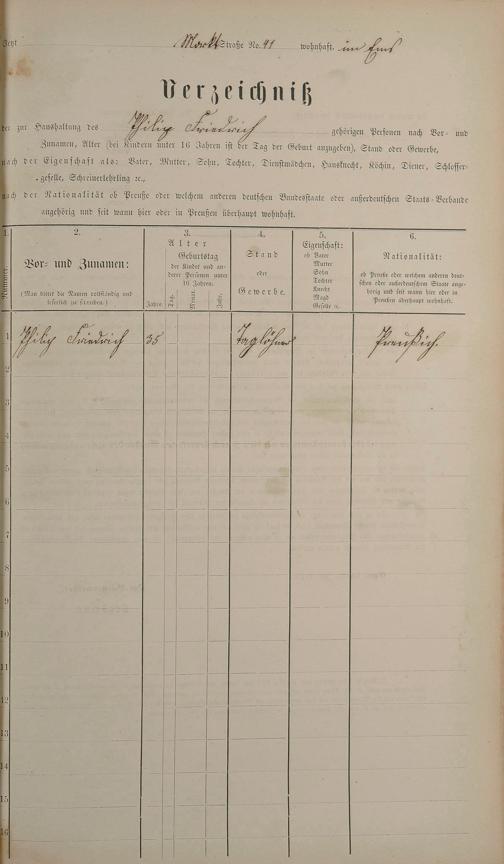 Jetzt Markt Straße No. 41 wohnhaft. in Ems
Verzeichniß
der zur Haushaltung des Philip Friedrich gehörigen Personen nach Vor- und
Zunamen, Alter (bei Kindern unter 16 Jahren ist der Tag der Geburt anzugeben), Stand oder Gewerbe,
nach der Eigenschaft als: Vater, Mutter, Sohn, Tochter, Dienstmädchen, Hausknecht, Köchin, Diener, Schlosser-
geselle, Schreinerlehrling ꝛc.,
nach der Nationalität ob Preuße oder welchem anderen deutschen Bundesstaate oder außerdeutschen Staats-Verbande
angehörig und seit wann hier oder in Preußen überhaupt wohnhaft.
1.
Nummer.
2.
Vor- und Zunamen:
(Man bittet die Namen vollständig und
leserlich zu schreiben.)
3.
Alter
Geburtstag
der Kinder und an-
derer Personen unter
16 Jahren.
Jahre.
Tag.
Monat.
Jahr.
4.
Stand
oder
Gewerbe.
5.
Eigenschaft:
ob Vater
Mutter
Sohn
Tochter
Knecht
Magd
Geselle ꝛc.
6.
Nationalität:
ob Preuße oder welchem anderen deut-
schen oder außerdeutschen Staate ange-
hörig und seit wann hier oder in
Preußen überhaupt wohnhaft.
1 Philip Friedrich 35 Taglöhner Preußich.
2
3
4
5
6
7
8
9
10
11
12
13
14
15
16